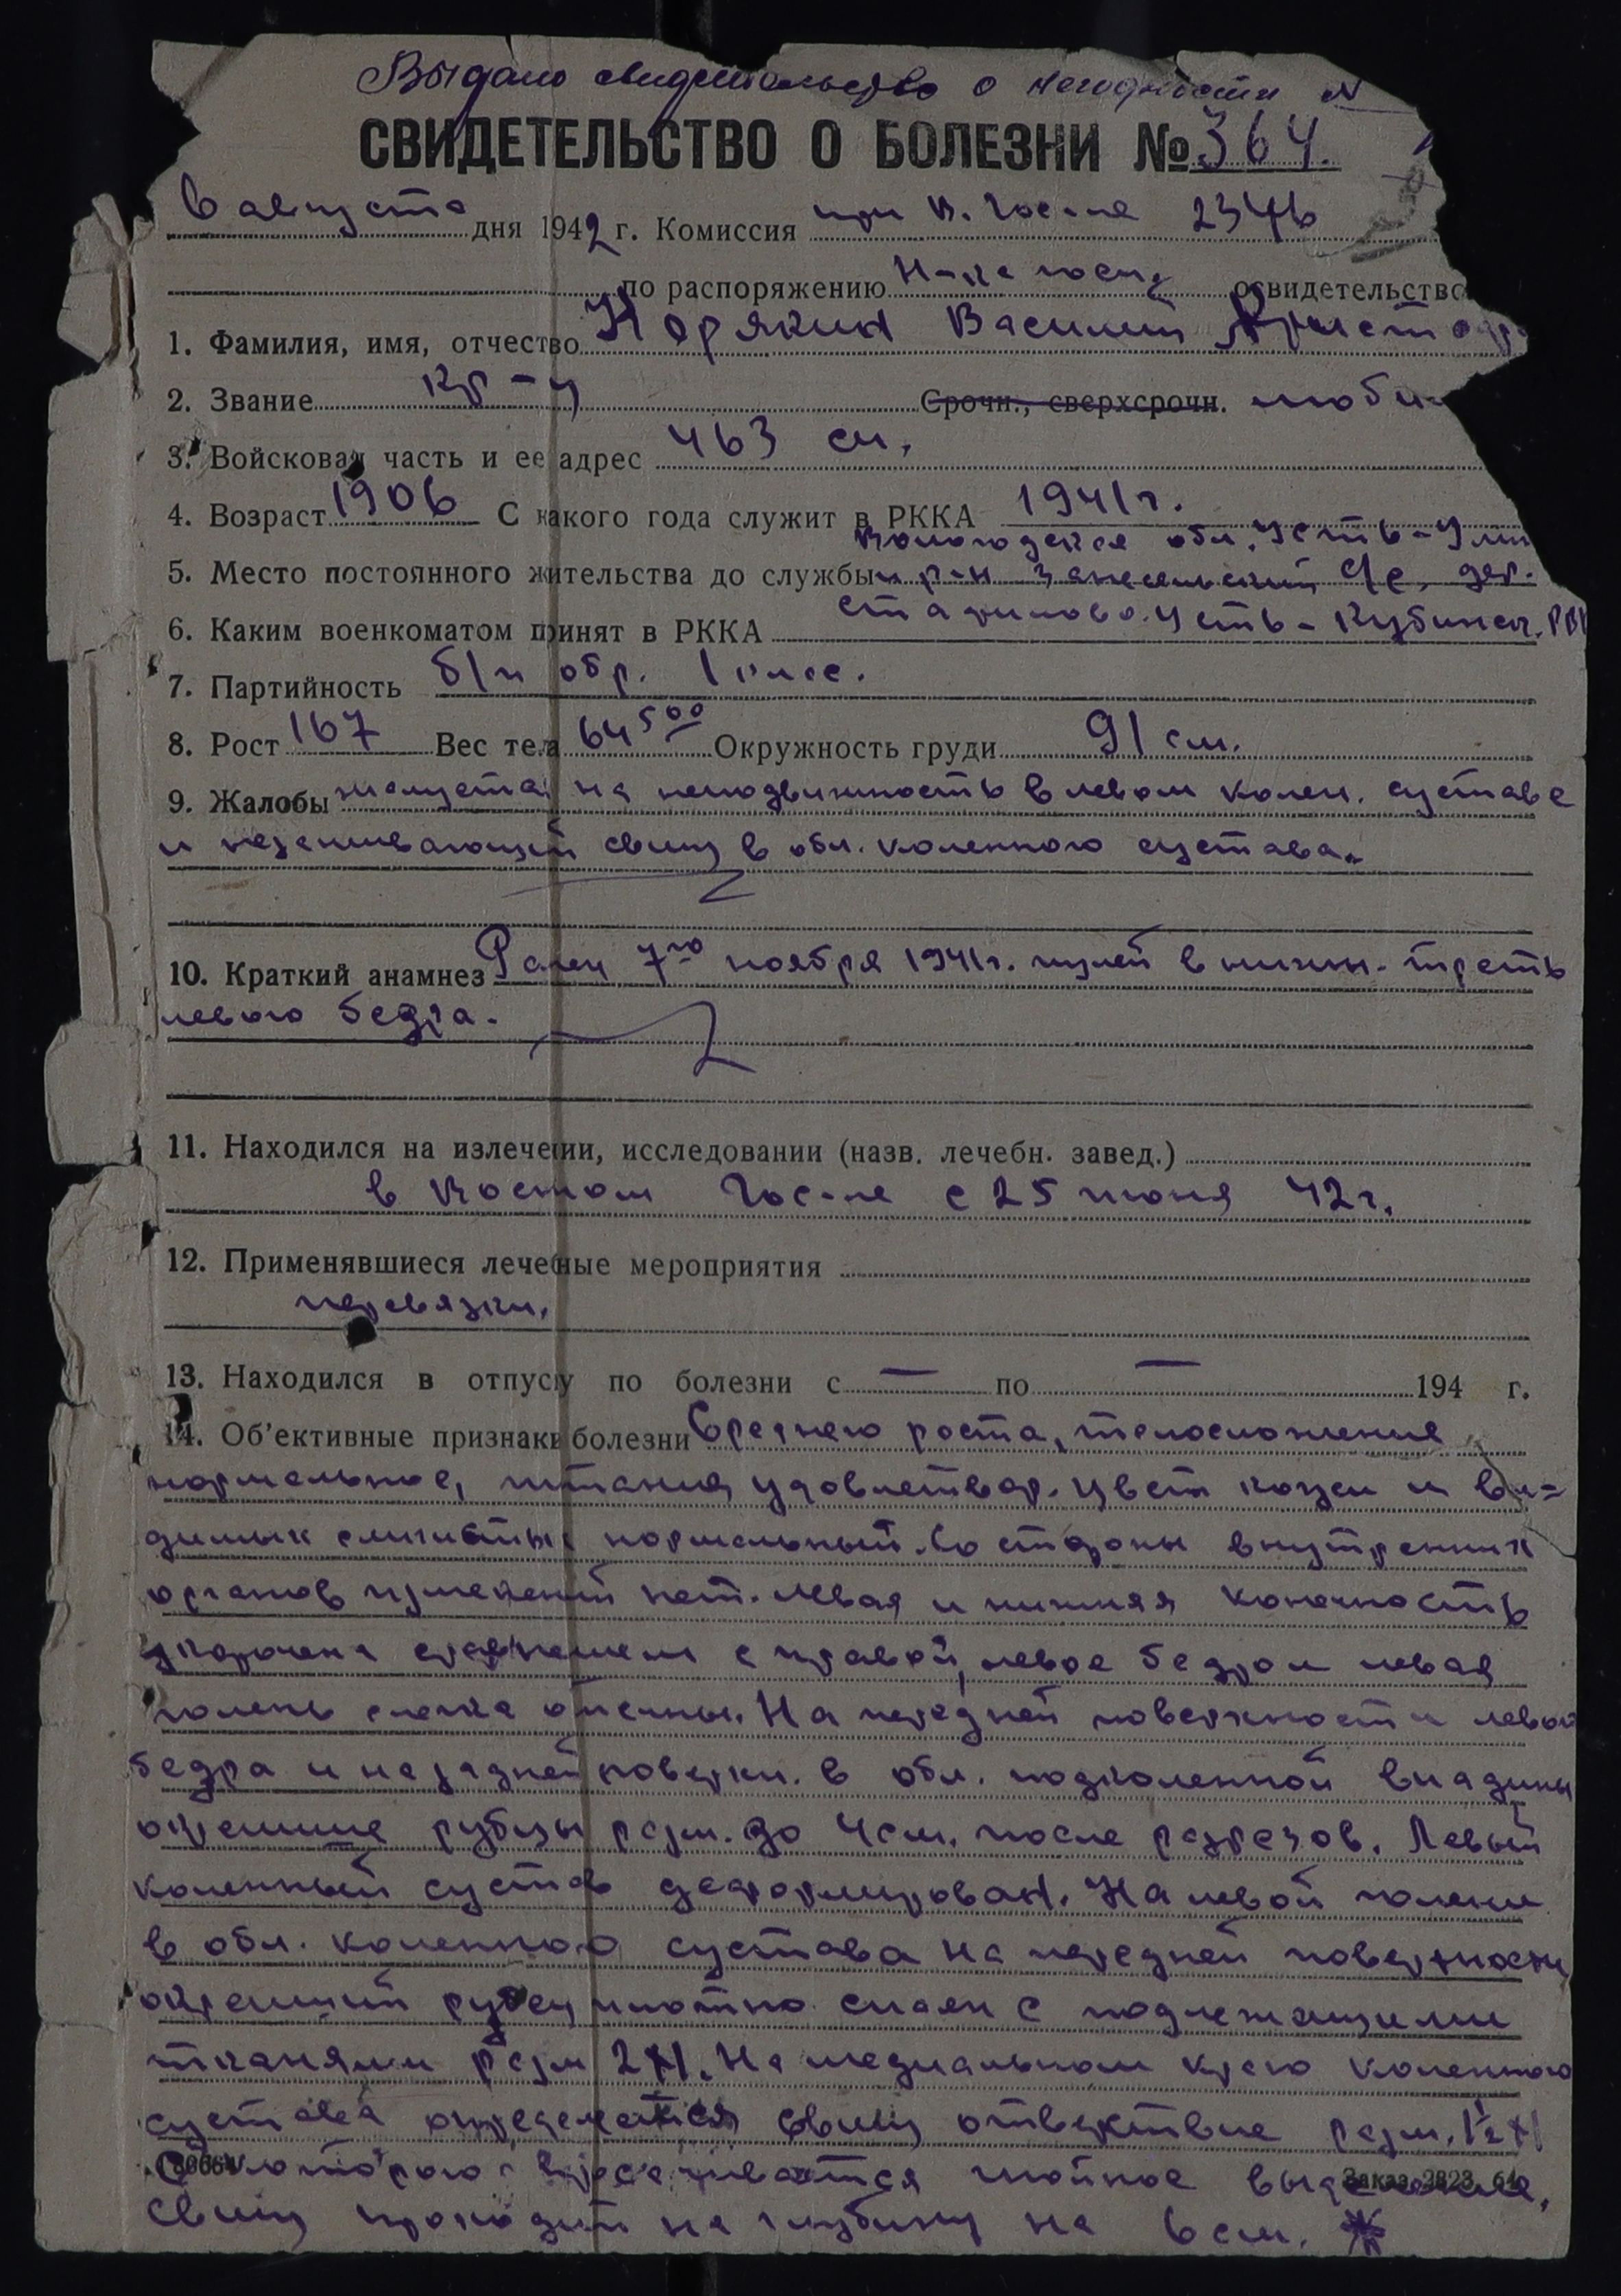 Выдано свидетельство о негодности N
СВИДЕТЕЛЬСТВО О БОЛЕЗНИ № 364.
6 августа дня 1942 г. Комиссия при В. Госп-ле 2346
по распоряжению Н-ка госп. освидетельство
1. Фамилия, имя, отчество Корякин Василий
2. Звание кр-ц Срочн., сверхсрочн. моби
3. Войсковая часть и ее адрес 463 сп.
4. Возраст 1906 С какого года служит в РККА 1941 г.
Вологодская обл. Усть-
5. Место постоянного жительства до службы р-н с/с, дер.
6. Каким военкоматом принят в РККА Усть-Кубинск. РВК
7. Партийность б/п обр. 1 клас.
8. Рост 167 Вес тела 64 500 Окружность груди 91 см.
9. Жалобы жалуется на неподвижность в левом колен. суставе
и незаживающий свищ в обл. коленного сустава.
10. Краткий анамнез Ранен 7го ноября 1941 г. пулей в нижн. треть
левого бедра.
11. Находился на излечении, исследовании (назв. лечебн. завед.)
в Госп-ле с 25 июня 42 г.
12. Применявшиеся лечебные мероприятия
перевязки.
13. Находился в отпуску по болезни с — по — 194 г.
14. Об'ективные признаки болезни Среднего роста, телосложения
нормальное, питания удовлетвор. Цвет кожи и ви-
димых слизистых нормальный. Со стороны внутренних
органов изменений нет. Левая и нижняя конечность
укорочена с правой, левое бедро и левая
голень слегка отечны. На передней поверхности левого
бедра и на задней поверхн. в обл. подколенной впадины
окрепшие рубцы разм. до 4 см. после разрезов. Левый
коленный сустав деформирован. На левой голени
в обл. коленного сустава на передней поверхности
окрепший рубец плотно спаян с подлежащими
тканями разм 2х1. На медиальном краю коленного
сустава определяется свищ отверствие разм. 1½х1
которого гнойное выделение.
Заказ 2823.
Свищ проходит на глубину на 6 см.